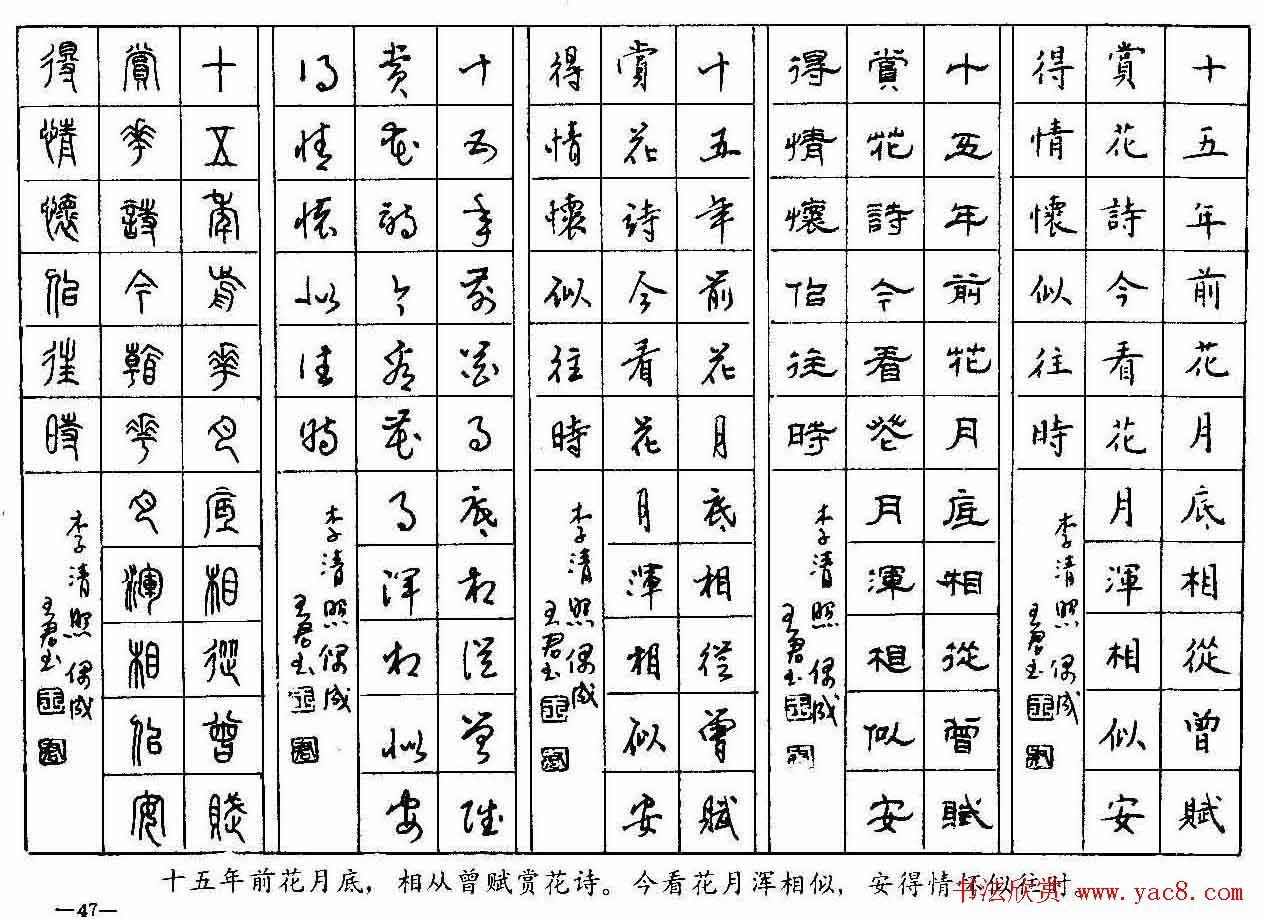 十五年前花月底相從曾賦
賞花詩今看花月渾相似安
得情懷似往時
李清照偶成
王君書
十五年前花月底相從曾賦
賞花詩今看花月渾相似安
得情懷似往時
李清照偶成
王君書
十五年前花月底相從曾賦
賞花詩今看花月渾相似安
得情懷似往時
李清照偶成
王君書
十五年前花月底相從曾賦
賞花詩今看花月渾相似安
得情懷似往時
李清照偶成
王君書
十五年前花月底相從曾賦
賞花詩今看花月渾相似安
得情懷似往時
李清照偶成
王君書
十五年前花月底，相从曾赋赏花诗。今看花月浑相似，安得情怀似往时。
书法欣赏 www.yac8.com
—47—